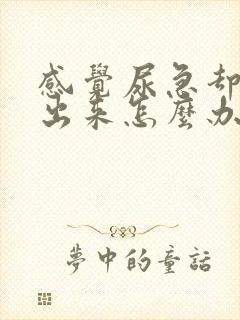 感覺尿急却
出来怎麼办
夢中的童話